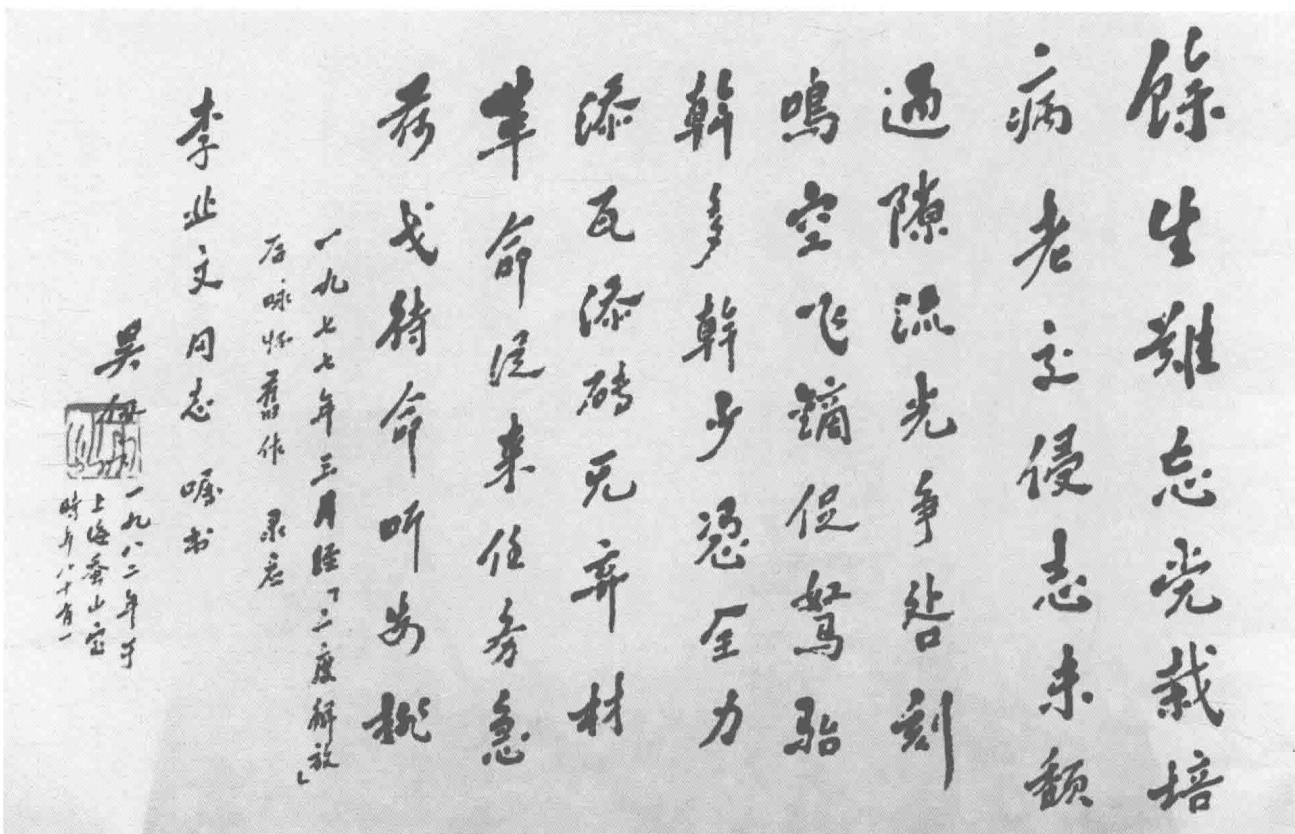 餘生難忘党栽培
病老交侵志未颓
過隙流光争晷刻
鳴空飞镝促駑駘
幹多幹少凭全力
添瓦添砖无弃材
革命从来任务急
荷戈待命听安排
一九七七年三月経「二度解放」
后咏怀舊作 录应
李业文同志 嘱书
吴
一九八二年于
上海蚕山室
時年八十有一